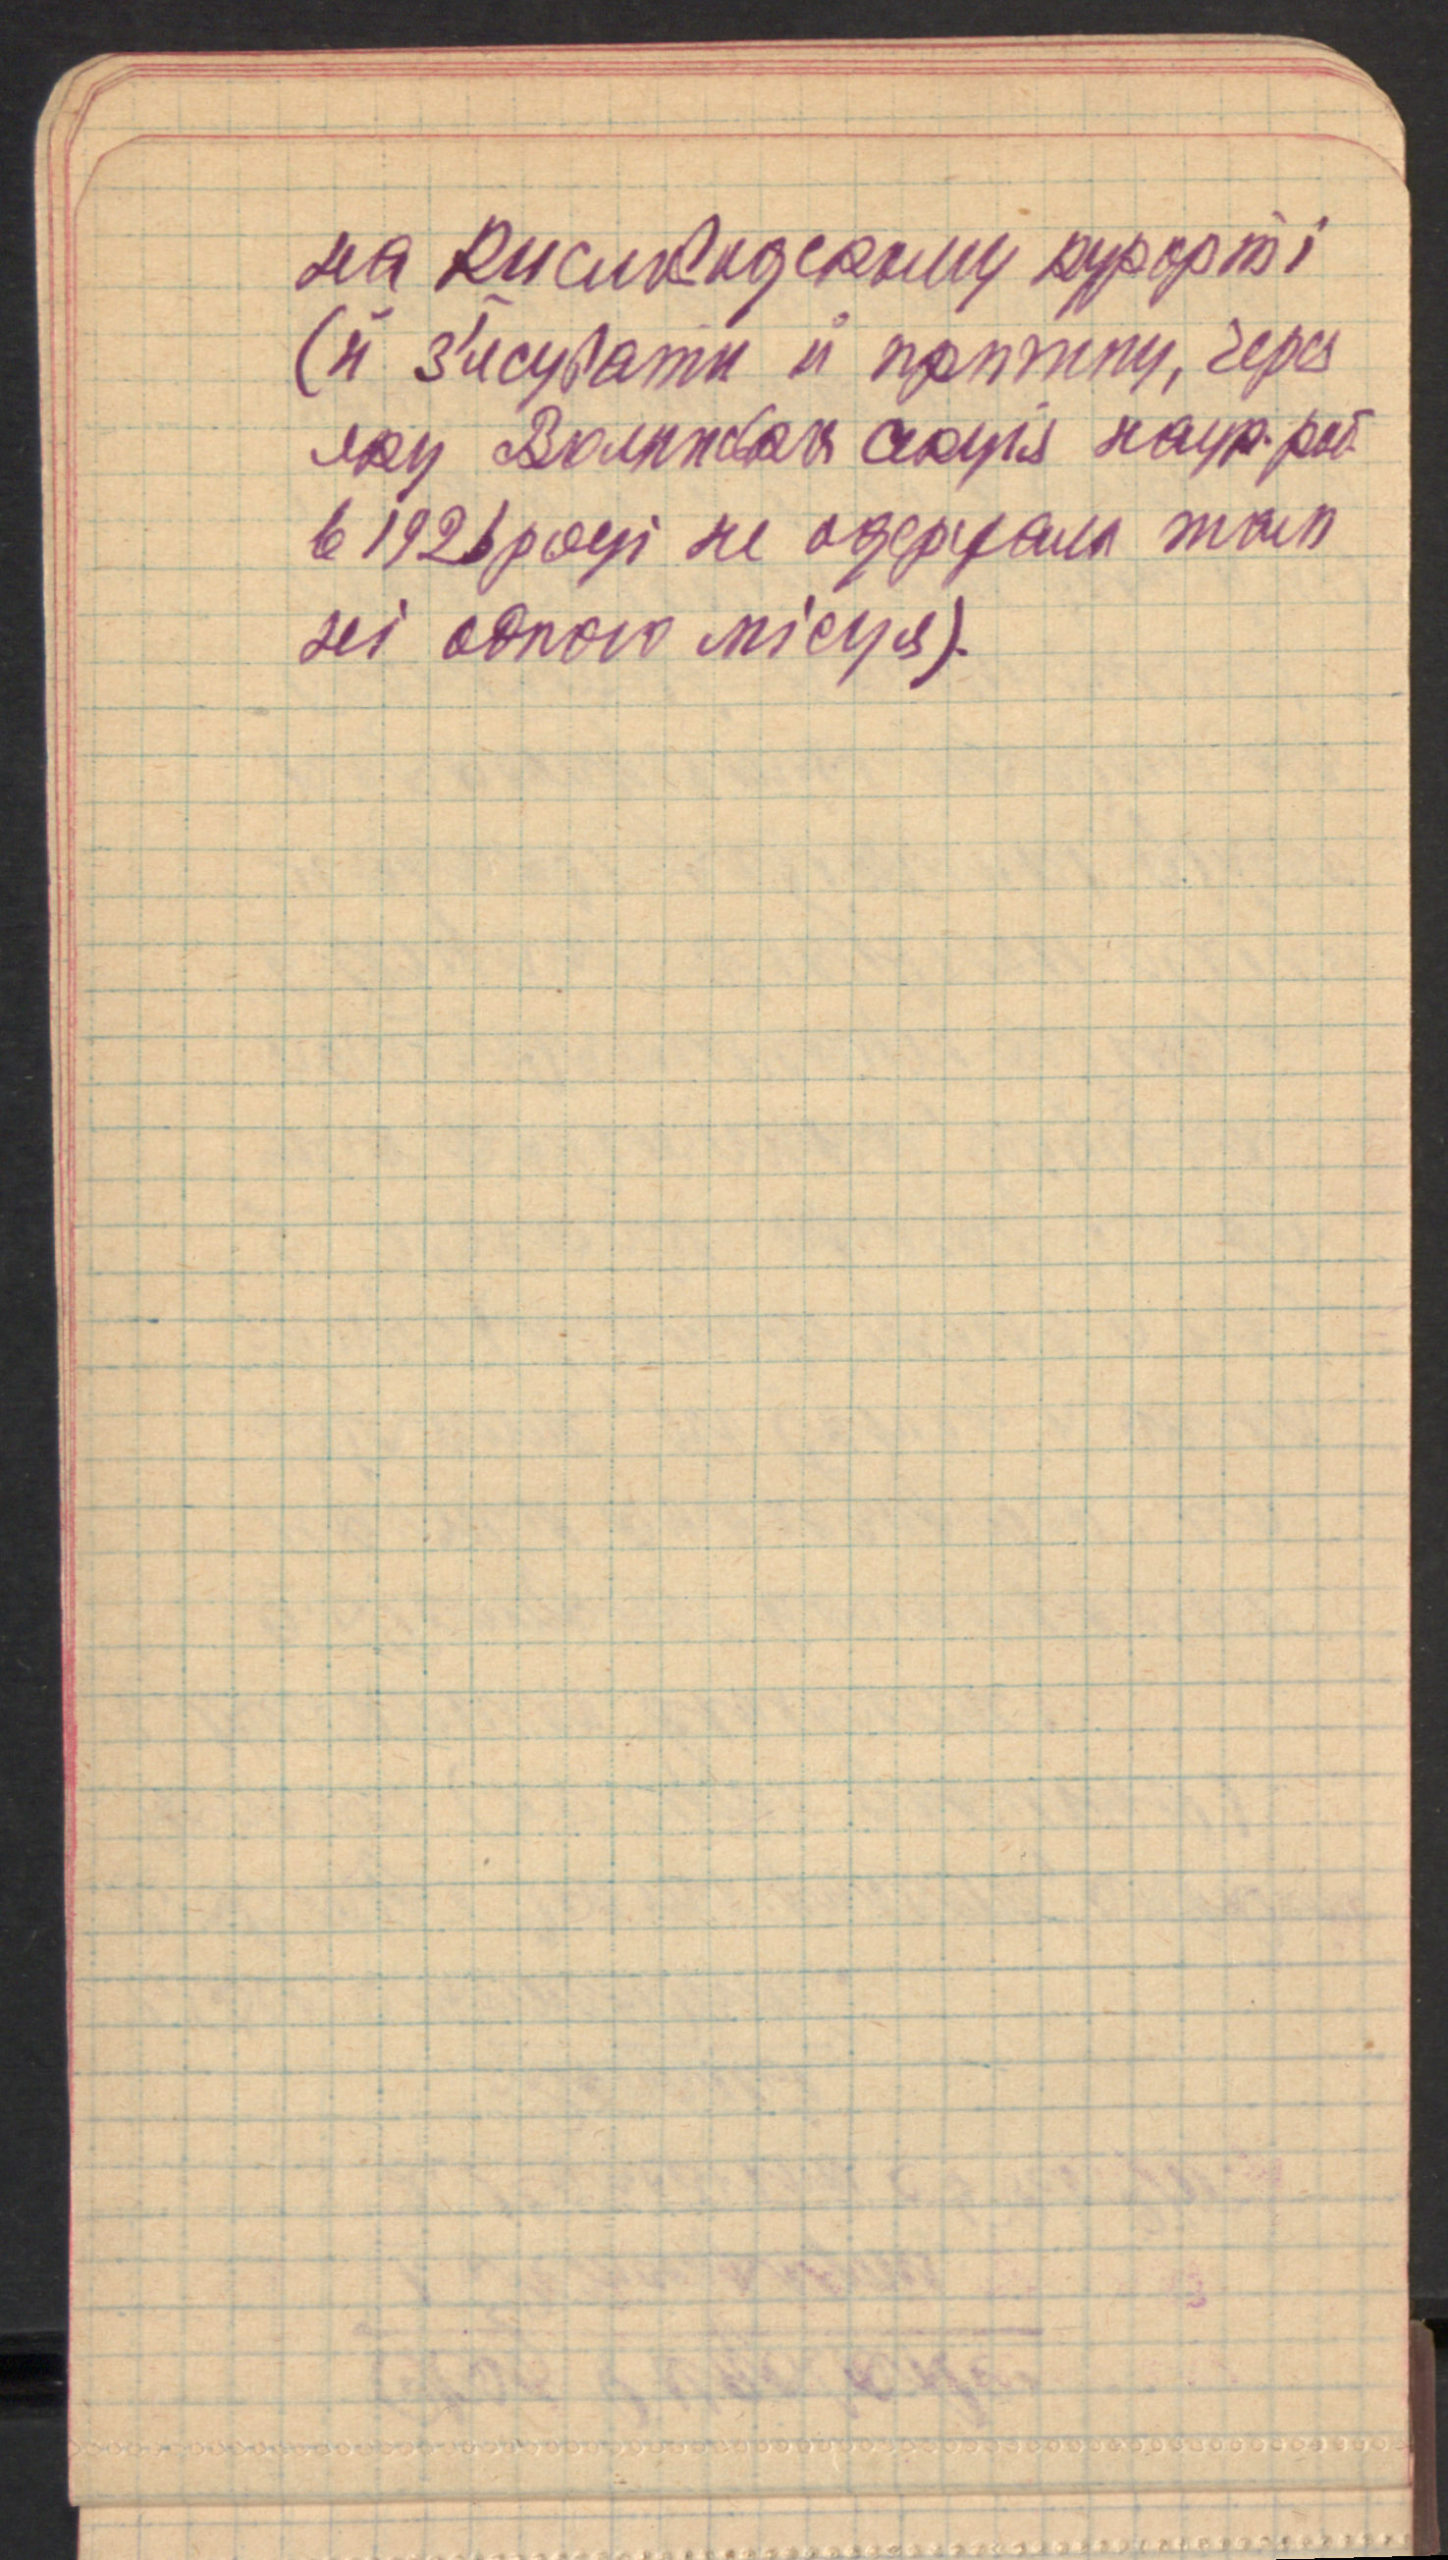 на Кисловодському курорті
(й з'ясувати й причину, через
яку Волинська секція наук. роб.
в 1926 році не одержала там
ні одного місця).